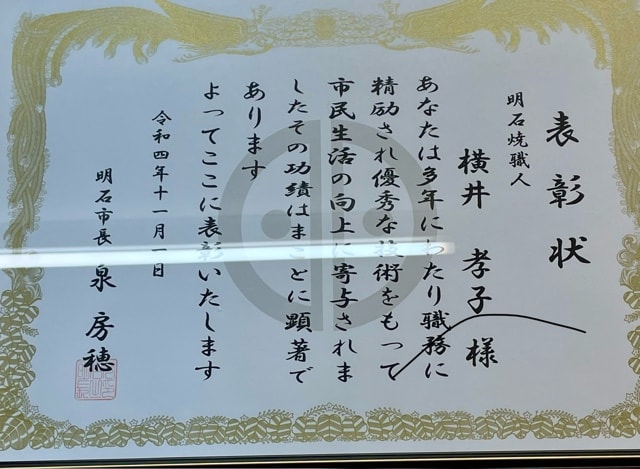 表彰状
明石焼職人
横井 孝子 様
あなたは多年にわたり職務に
精励され優秀な技術をもって
市民生活の向上に寄与されま
したその功績はまことに顕著で
あります
よってここに表彰いたします
令和四年十一月一日
明石市長 泉 房穂